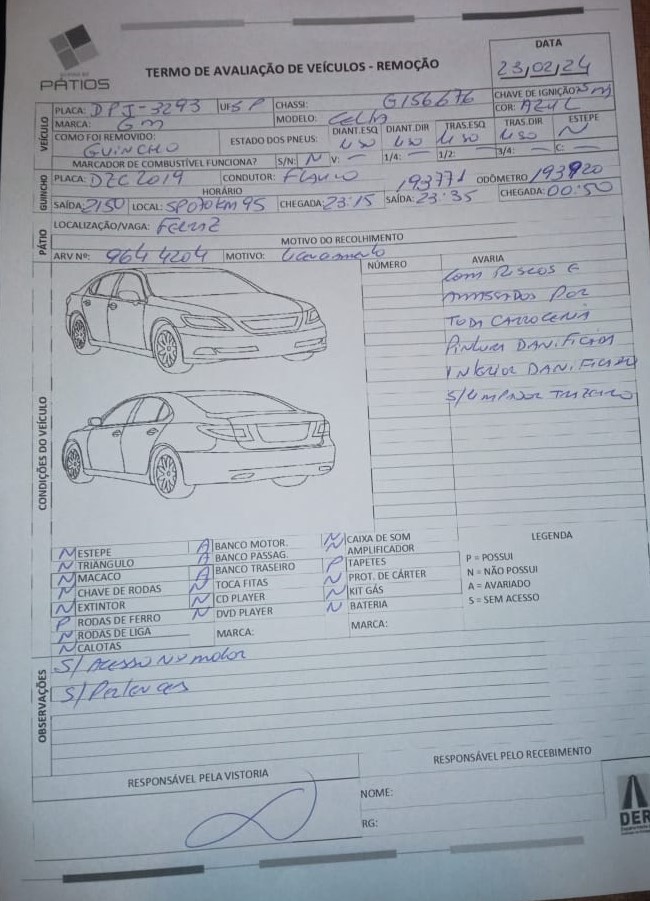 PÁTIOS
TERMO DE AVALIAÇÃO DE VEÍCULOS - REMOÇÃO
DATA
23/02/24
VEÍCULO
PLACA: DPJ-3293 UF: SP CHASSI: G156676 CHAVE DE IGNIÇÃO:
MARCA: GM MODELO: Celta COR: AZUL
COMO FOI REMOVIDO: GUINCHO ESTADO DOS PNEUS: DIANT.ESQ DIANT.DIR TRAS.ESQ TRAS.DIR ESTEPE
uso uso uso uso N
MARCADOR DE COMBUSTÍVEL FUNCIONA? S/N: N V: — 1/4: — 1/2: — 3/4: — C: —
GUINCHO
PLACA: DZC2019 CONDUTOR: Flavio 193771 ODÔMETRO 193920
HORÁRIO
SAÍDA: 2150 LOCAL: SP070 KM 95 CHEGADA: 23:15 SAÍDA: 23:35 CHEGADA: 00:50
PÁTIO
LOCALIZAÇÃO/VAGA: Feliz
MOTIVO DO RECOLHIMENTO
ARV Nº: 964 4204 MOTIVO:
CONDIÇÕES DO VEÍCULO
NÚMERO AVARIA
Com Riscos e
Amassados por
Toda Carroceria
Pintura Danificada
Interior Danificado
S/Limpador Traseiro
N ESTEPE A BANCO MOTOR. N CAIXA DE SOM
N TRIÂNGULO A BANCO PASSAG. N AMPLIFICADOR
N MACACO A BANCO TRASEIRO P TAPETES
N CHAVE DE RODAS N TOCA FITAS N PROT. DE CÁRTER
N EXTINTOR N CD PLAYER N KIT GÁS
P RODAS DE FERRO N DVD PLAYER N BATERIA
N RODAS DE LIGA MARCA: MARCA:
N CALOTAS
LEGENDA
P = POSSUI
N = NÃO POSSUI
A = AVARIADO
S = SEM ACESSO
OBSERVAÇÕES
S/ Acesso Nº motor
S/ Pertences
RESPONSÁVEL PELA VISTORIA
RESPONSÁVEL PELO RECEBIMENTO
NOME:
RG:
DER